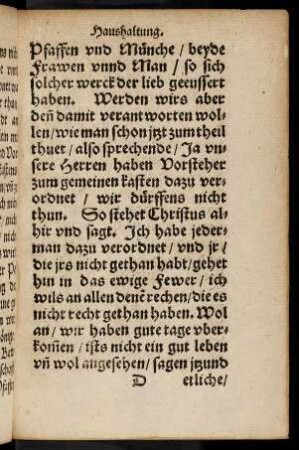 Haushaltung.
Pfaffen vnd Münche / beyde
Frawen vnnd Man / so sich
solcher werck der lieb geeussert
haben. Werden wirs aber
deñ damit verantworten wol-
len / wie man schon jtzt zum theil
thuet / also sprechende / Ja vn-
sere Herren haben Vorsteher
zum gemeinen kasten dazu ver-
ordnet / wir dürffens nicht
thun. So stehet Christus al-
hir vnd sagt. Ich habe jeder-
man dazu verordnet / vnd jr /
die jrs nicht gethan habt / gehet
hin in das ewige Fewer / ich
wils an allen denẽ rechen / die es
nicht recht gethan haben. Wol
an / wir haben gute tage vber-
kom̃en / ists nicht ein gut leben
vñ wol angesehen / sagen jtzund
D etliche /